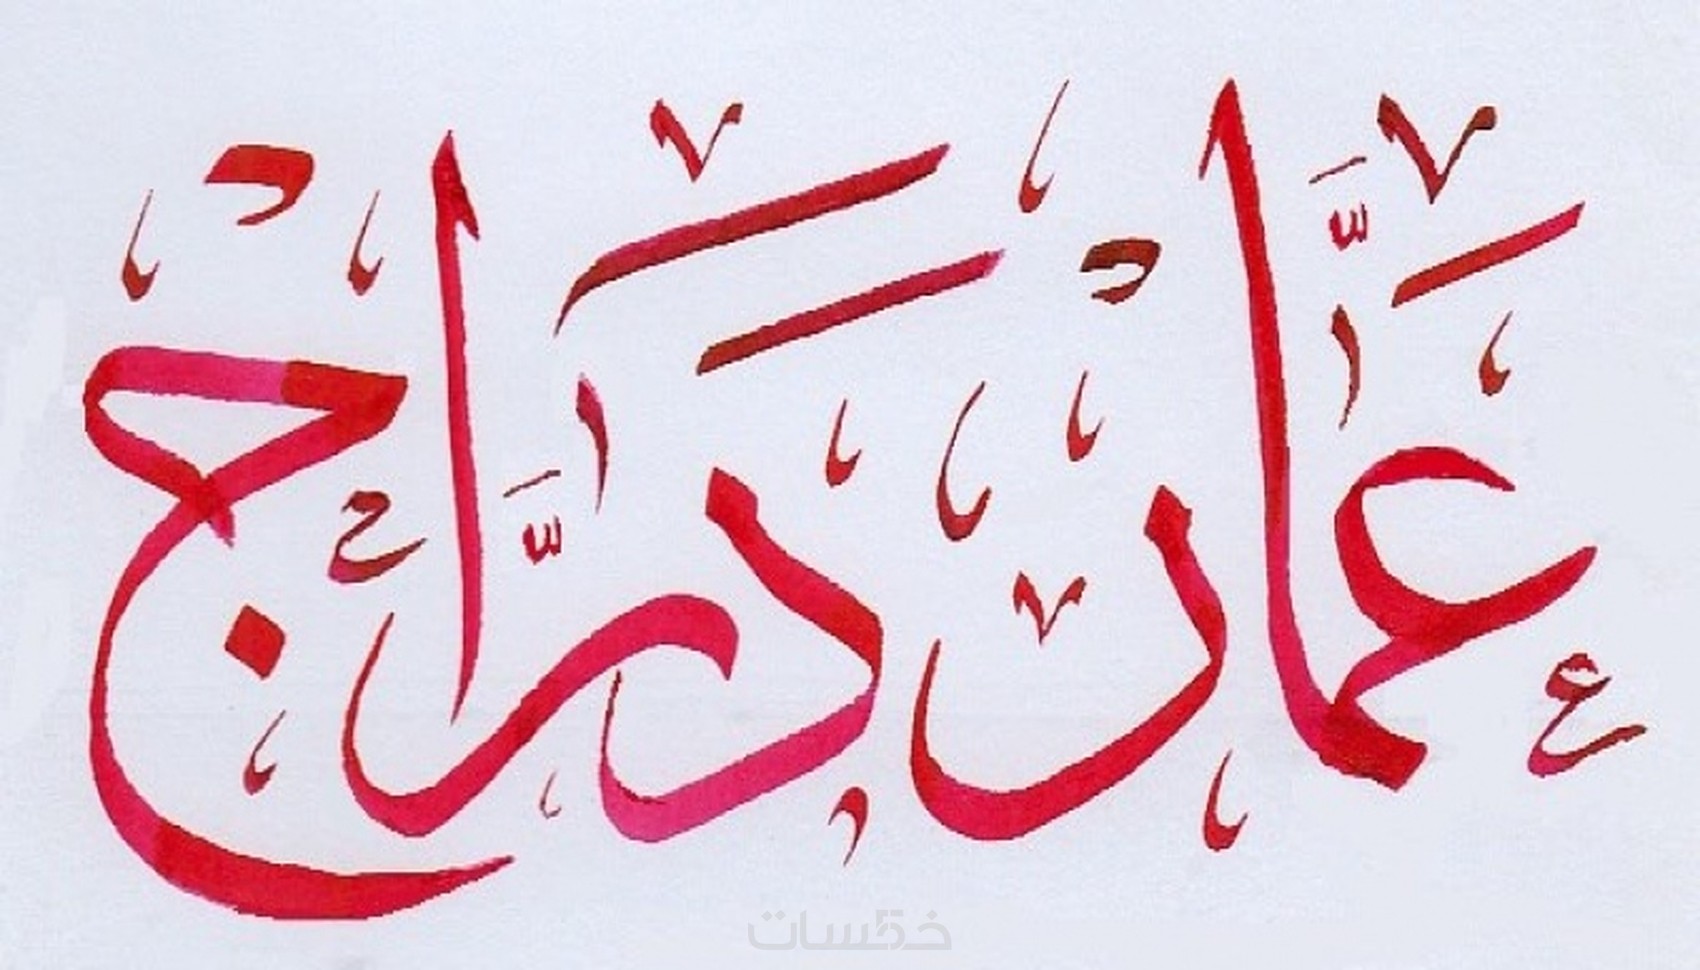 عمَّار درَّاج
خمسات